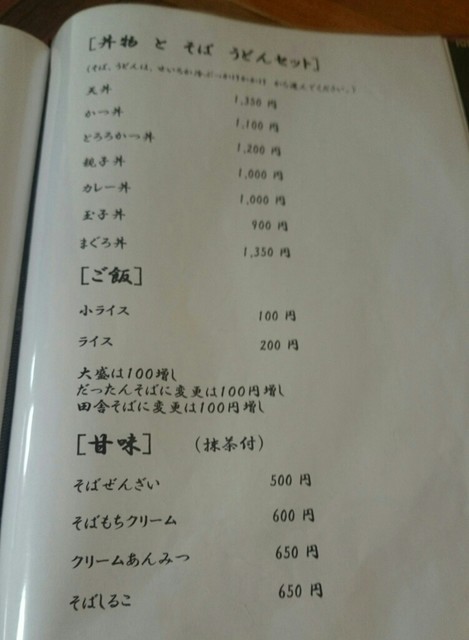 [丼物 と そば うどんセット]
(そば、うどんは、せいろか冷ぶっかけかかけ から選んでください。)
天丼 1,350 円
かつ丼 1,100 円
とろろかつ丼 1,200 円
親子丼 1,000 円
カレー丼 1,000 円
玉子丼 900 円
まぐろ丼 1,350 円
[ご飯]
小ライス 100 円
ライス 200 円
大盛は100増し
だったんそばに変更は100円増し
田舎そばに変更は100円増し
[甘味] (抹茶付)
そばぜんざい 500 円
そばもちクリーム 600 円
クリームあんみつ 650 円
そばしるこ 650 円